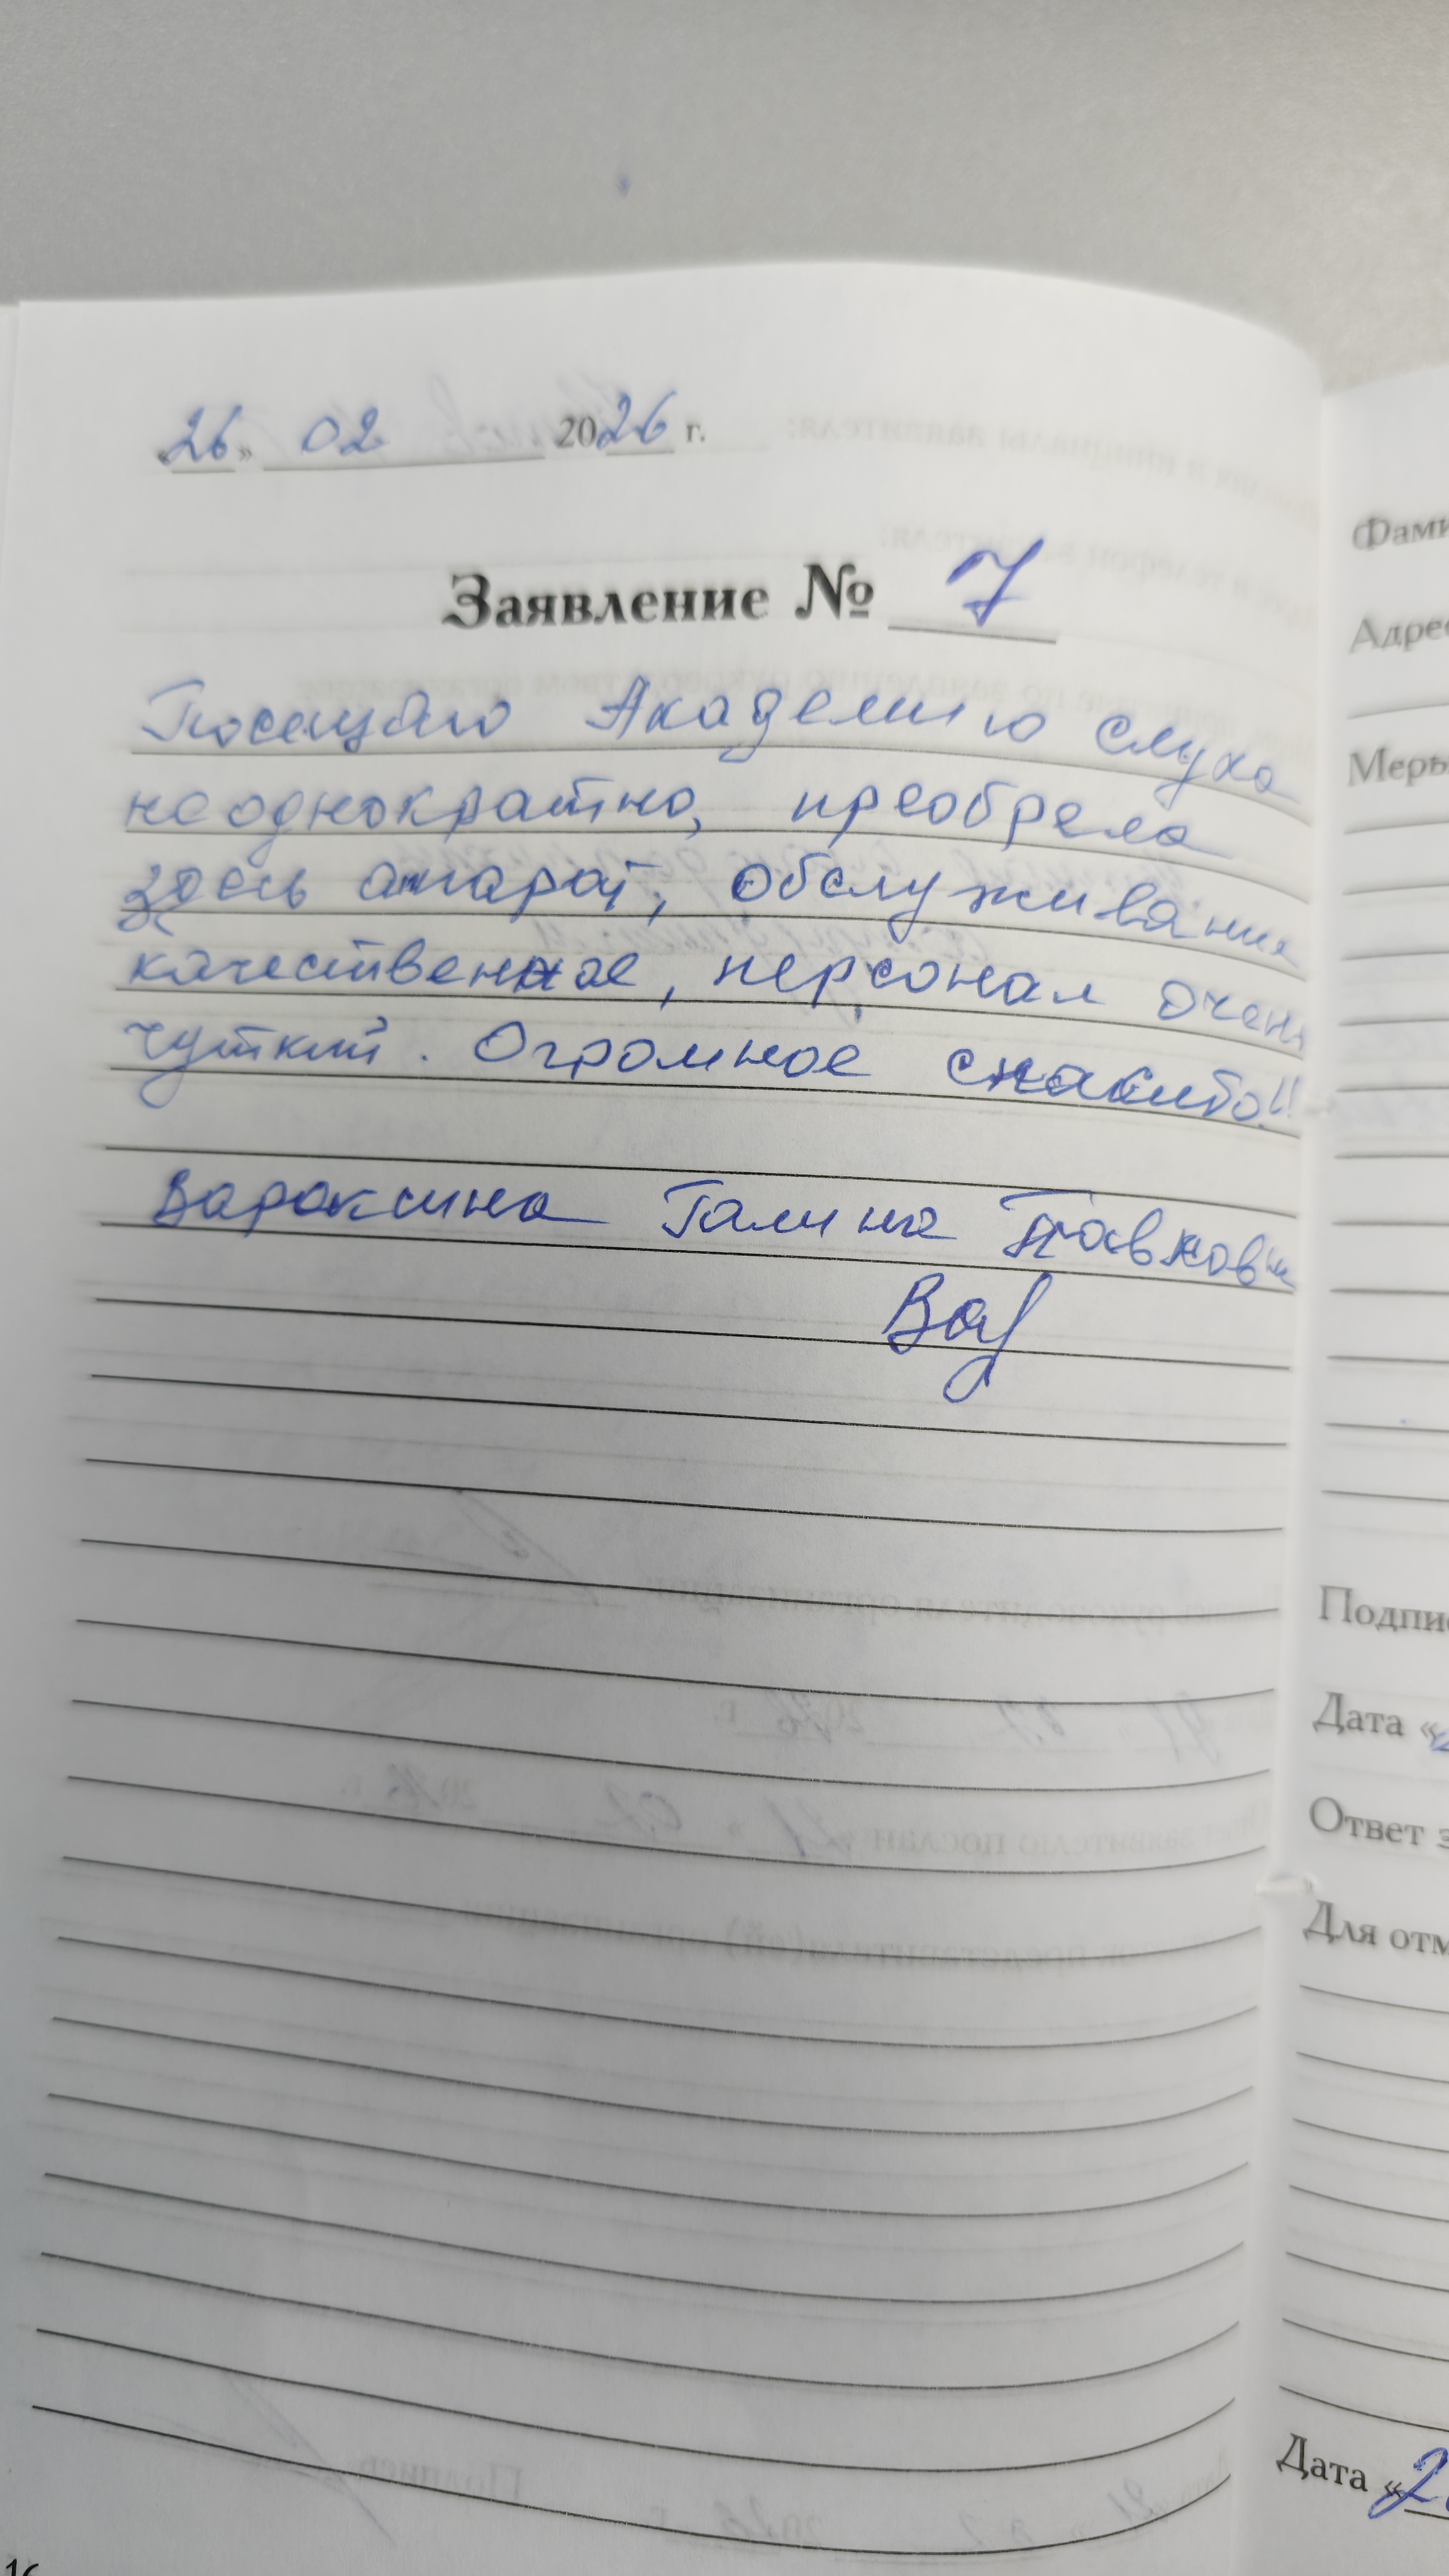 «26» 02 2026 г.
Заявление № 7
Посещаю Академию слуха
неоднократно, преобрела
здесь аппарат, обслуживание
качественное, персонал очень
чуткий. Огромное спасибо!!
Вараксина Галина Павловн
Вар
Фами
Адрес
Меры
Подпис
Дата «2
Ответ з
Для отм
Дата «2
16